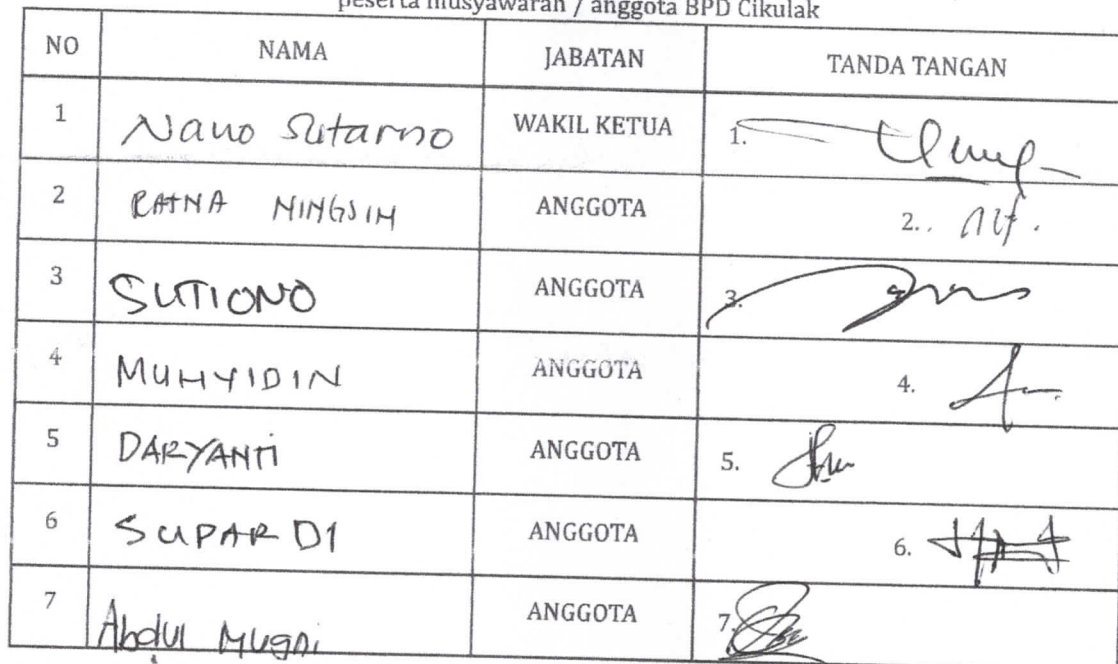 peserta musyawarah / anggota BPD Cikulak
NO NAMA JABATAN TANDA TANGAN
1 Nano Sutarno WAKIL KETUA 1.
2 RATNA NINGSIH ANGGOTA 2.
3 SUTIONO ANGGOTA 3.
4 MUHYIDIN ANGGOTA 4.
5 DARYANTI ANGGOTA 5.
6 SUPARDI ANGGOTA 6.
7 Abdul Mugni ANGGOTA 7.